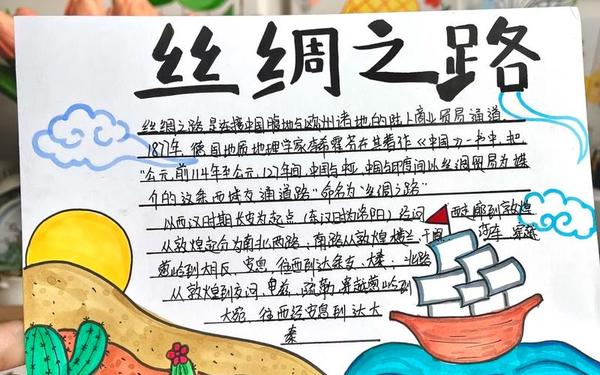 丝绸之路
丝绸之路是连接中国腹地与欧州诸地的陆上商业贸易通道.
1877年 德国地质地理学家李希霍芬在其著作《中国》一书中,把
"公元前114年至公元127年间,中国与 中国与印度间以丝绸贸易为媒
介的这条西域交通道路"命名为"丝绸之路"
以西汉时期长安为起点(东汉时为洛阳) 经河 西走廊到敦煌
从敦煌起分为南北两路,南路从敦煌楼兰,于阗 莎车 穿越
葱岭到大月氏、安息,往西到达条支、大秦,北路
从敦煌到交河、龟兹,疏勒,穿越葱岭到
大宛,往西经安息到达大
秦